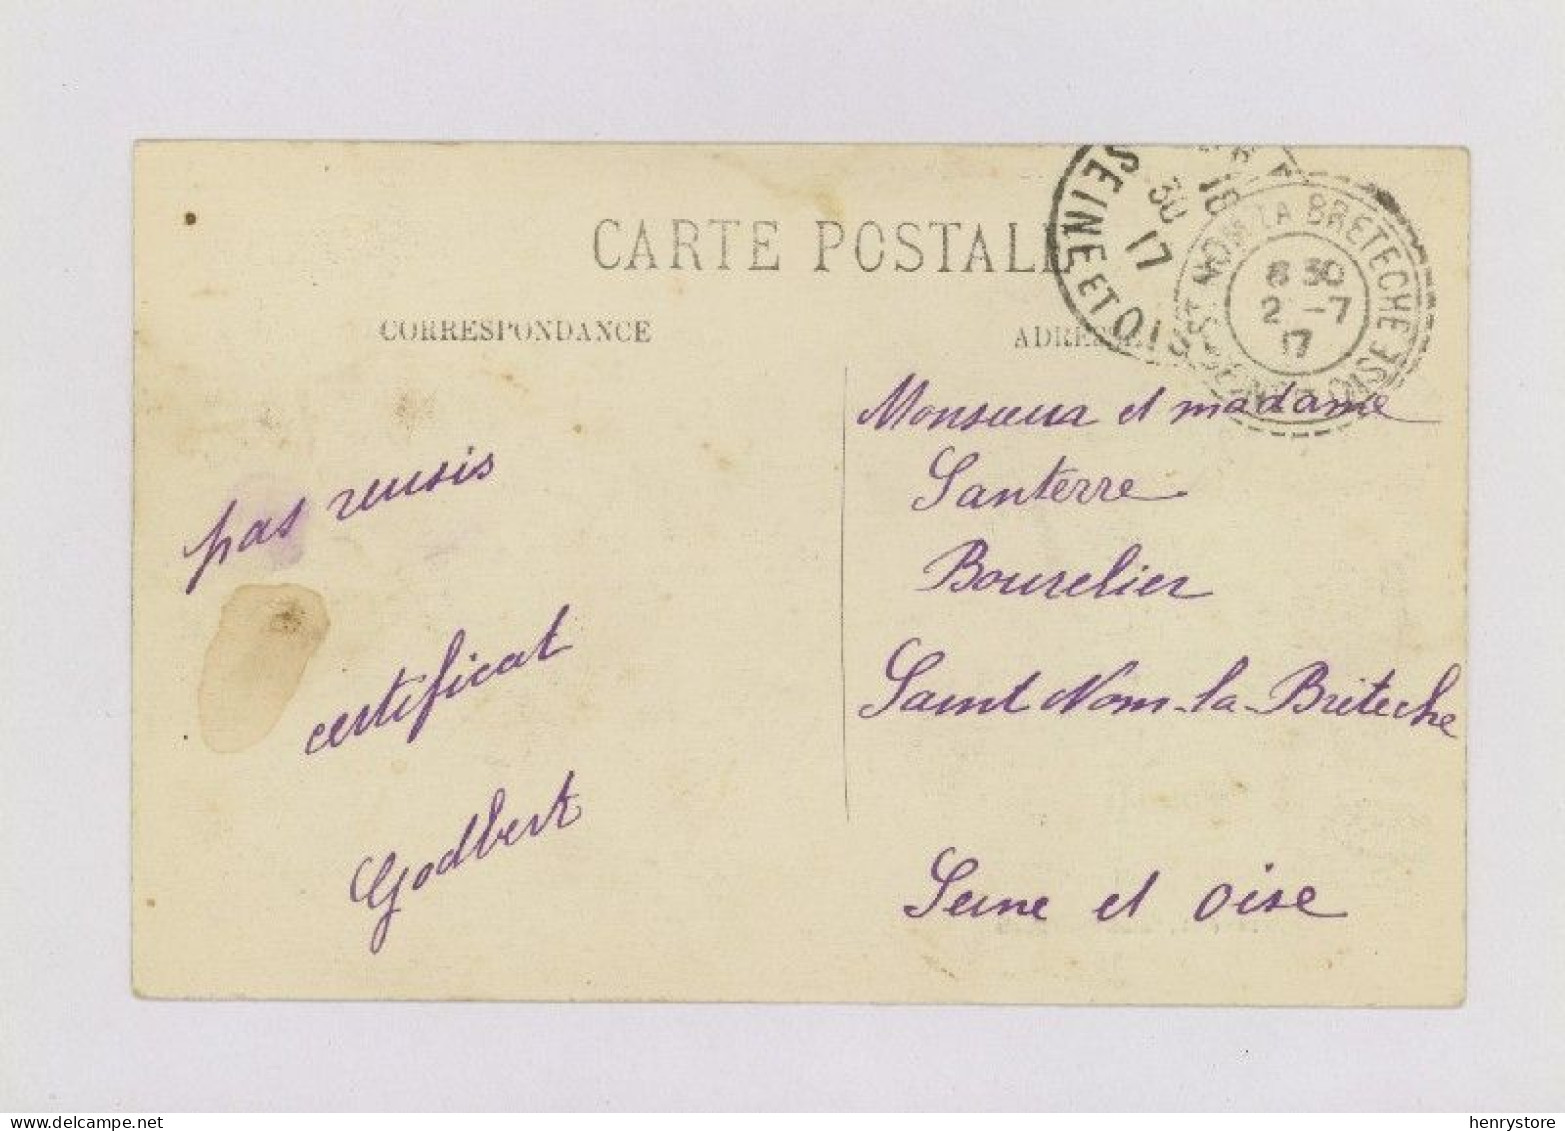 CARTE POSTALE
CORRESPONDANCE
ADRESSE
SEINE ET OISE
18
30
17
ST NOM LA BRETECHE
8 30
2 -7
17
SEINE ET OISE
pas reusis
certificat
Godbert
Monsieur et madame
Santerre
Bourelier
Saint Nom-la-Breteche
Seine et Oise
www.delcampe.net
henrystore